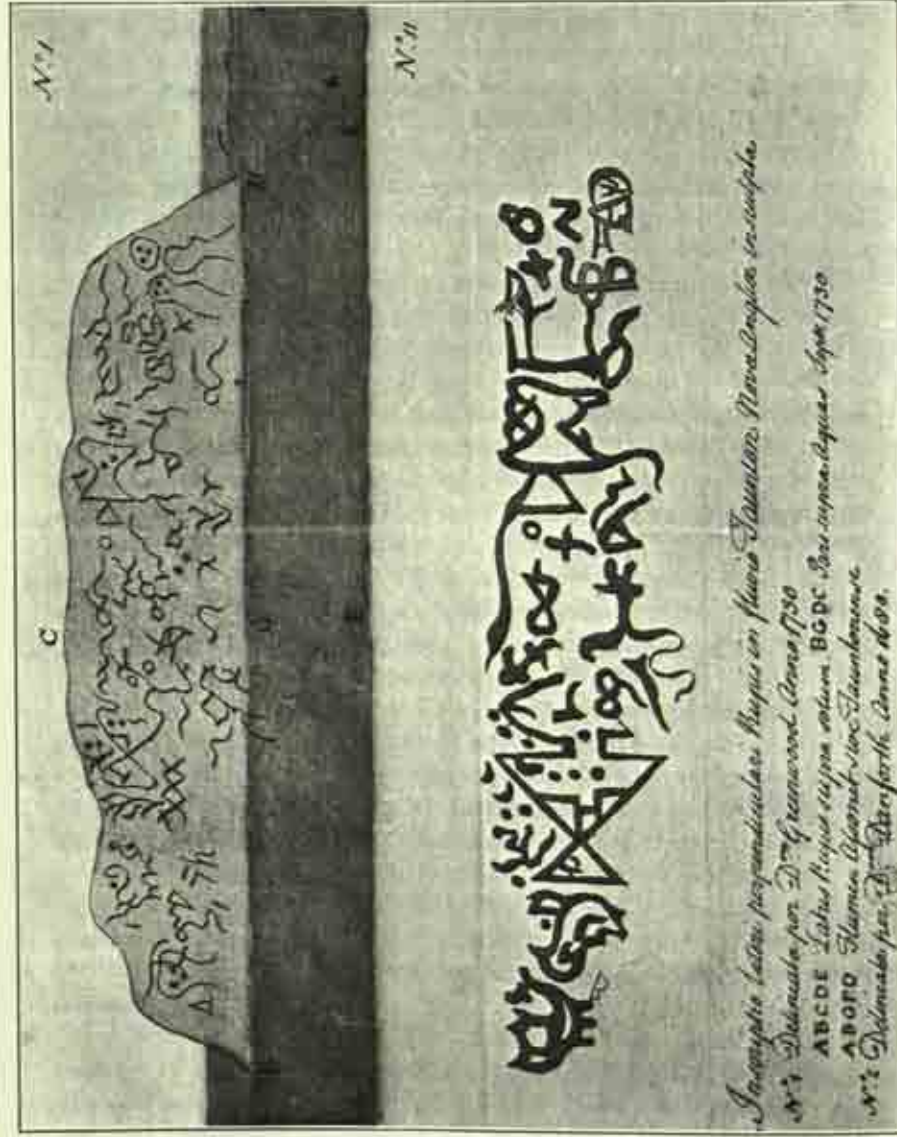 Nº I
C
Nº II
lateri perpendiculari Rupis in fluvio Taunton Nova Anglia insculpta
Nº 1 Delineata per Dm Greenwood Anno 1730
ABCDE Latus Rupis supra solum BGDC Pars supra Aquas Sept. 1730
Flumen sive Tauntonense
Nº 2 Delineata per Dm Danforth Anno 1680.